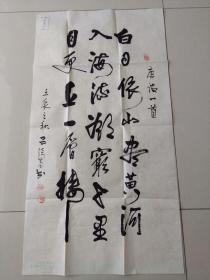 唐诗一首
白日依山盡黄河
入海流欲窮千里
目更上一層樓
壬辰之秋